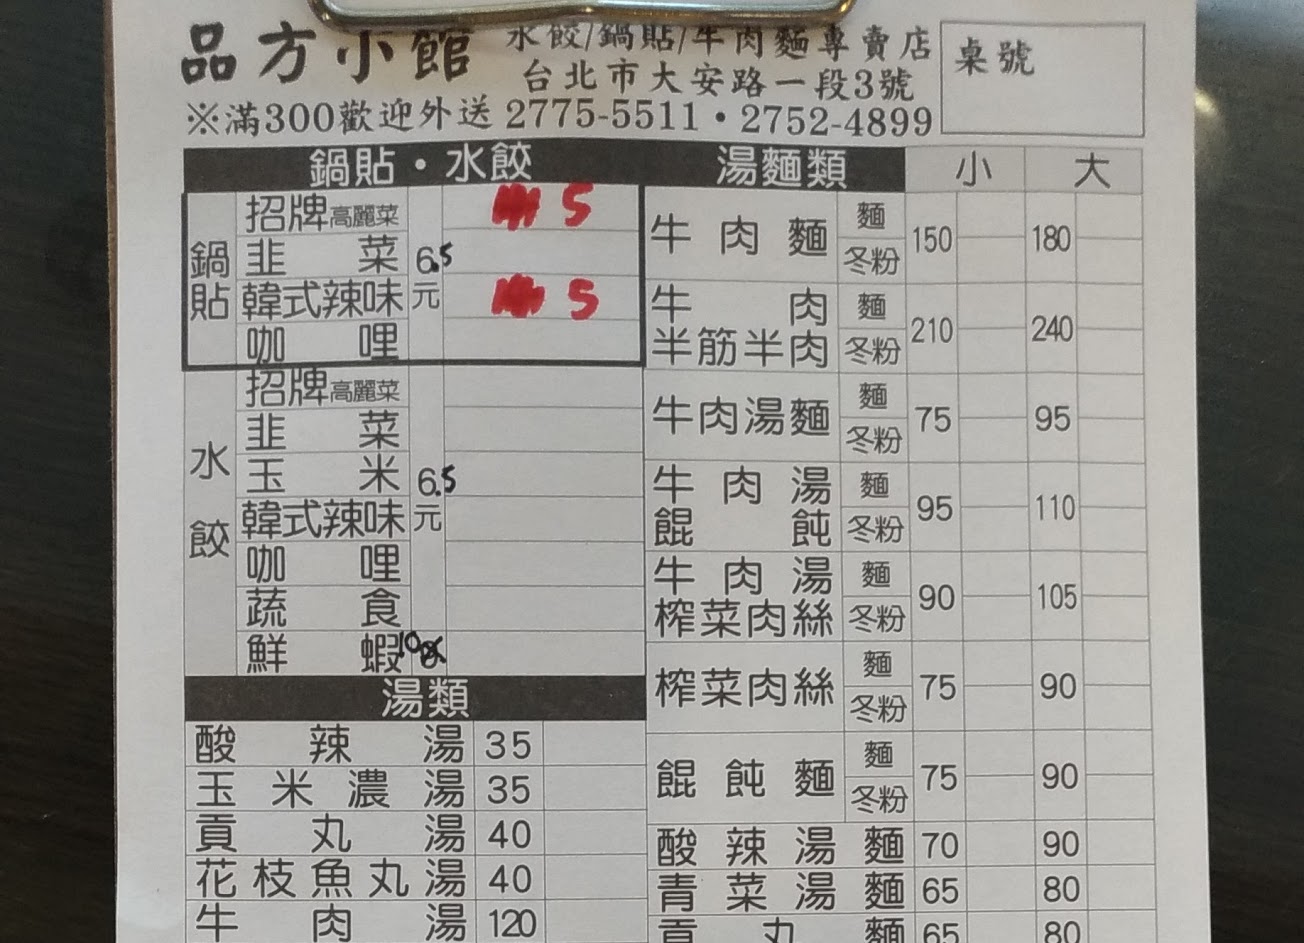 品方小館 水餃/鍋貼/牛肉麵專賣店 桌號
台北市大安路一段3號
※滿300歡迎外送 2775-5511・2752-4899
鍋貼・水餃
鍋貼
招牌高麗菜 5
韭菜 6.5元
韓式辣味 5
咖哩
水餃
招牌高麗菜
韭菜
玉米 6.5元
韓式辣味
咖哩
蔬食
鮮蝦 10
湯類
酸辣湯 35
玉米濃湯 35
貢丸湯 40
花枝魚丸湯 40
牛肉湯 120
湯麵類 小 大
牛肉麵 麵 冬粉 150 180
牛肉半筋半肉 麵 冬粉 210 240
牛肉湯麵 麵 冬粉 75 95
牛肉湯餛飩 麵 冬粉 95 110
牛肉湯榨菜肉絲 麵 冬粉 90 105
榨菜肉絲 麵 冬粉 75 90
餛飩麵 麵 冬粉 75 90
酸辣湯麵 70 90
青菜湯麵 65 80
貢丸麵 65 80